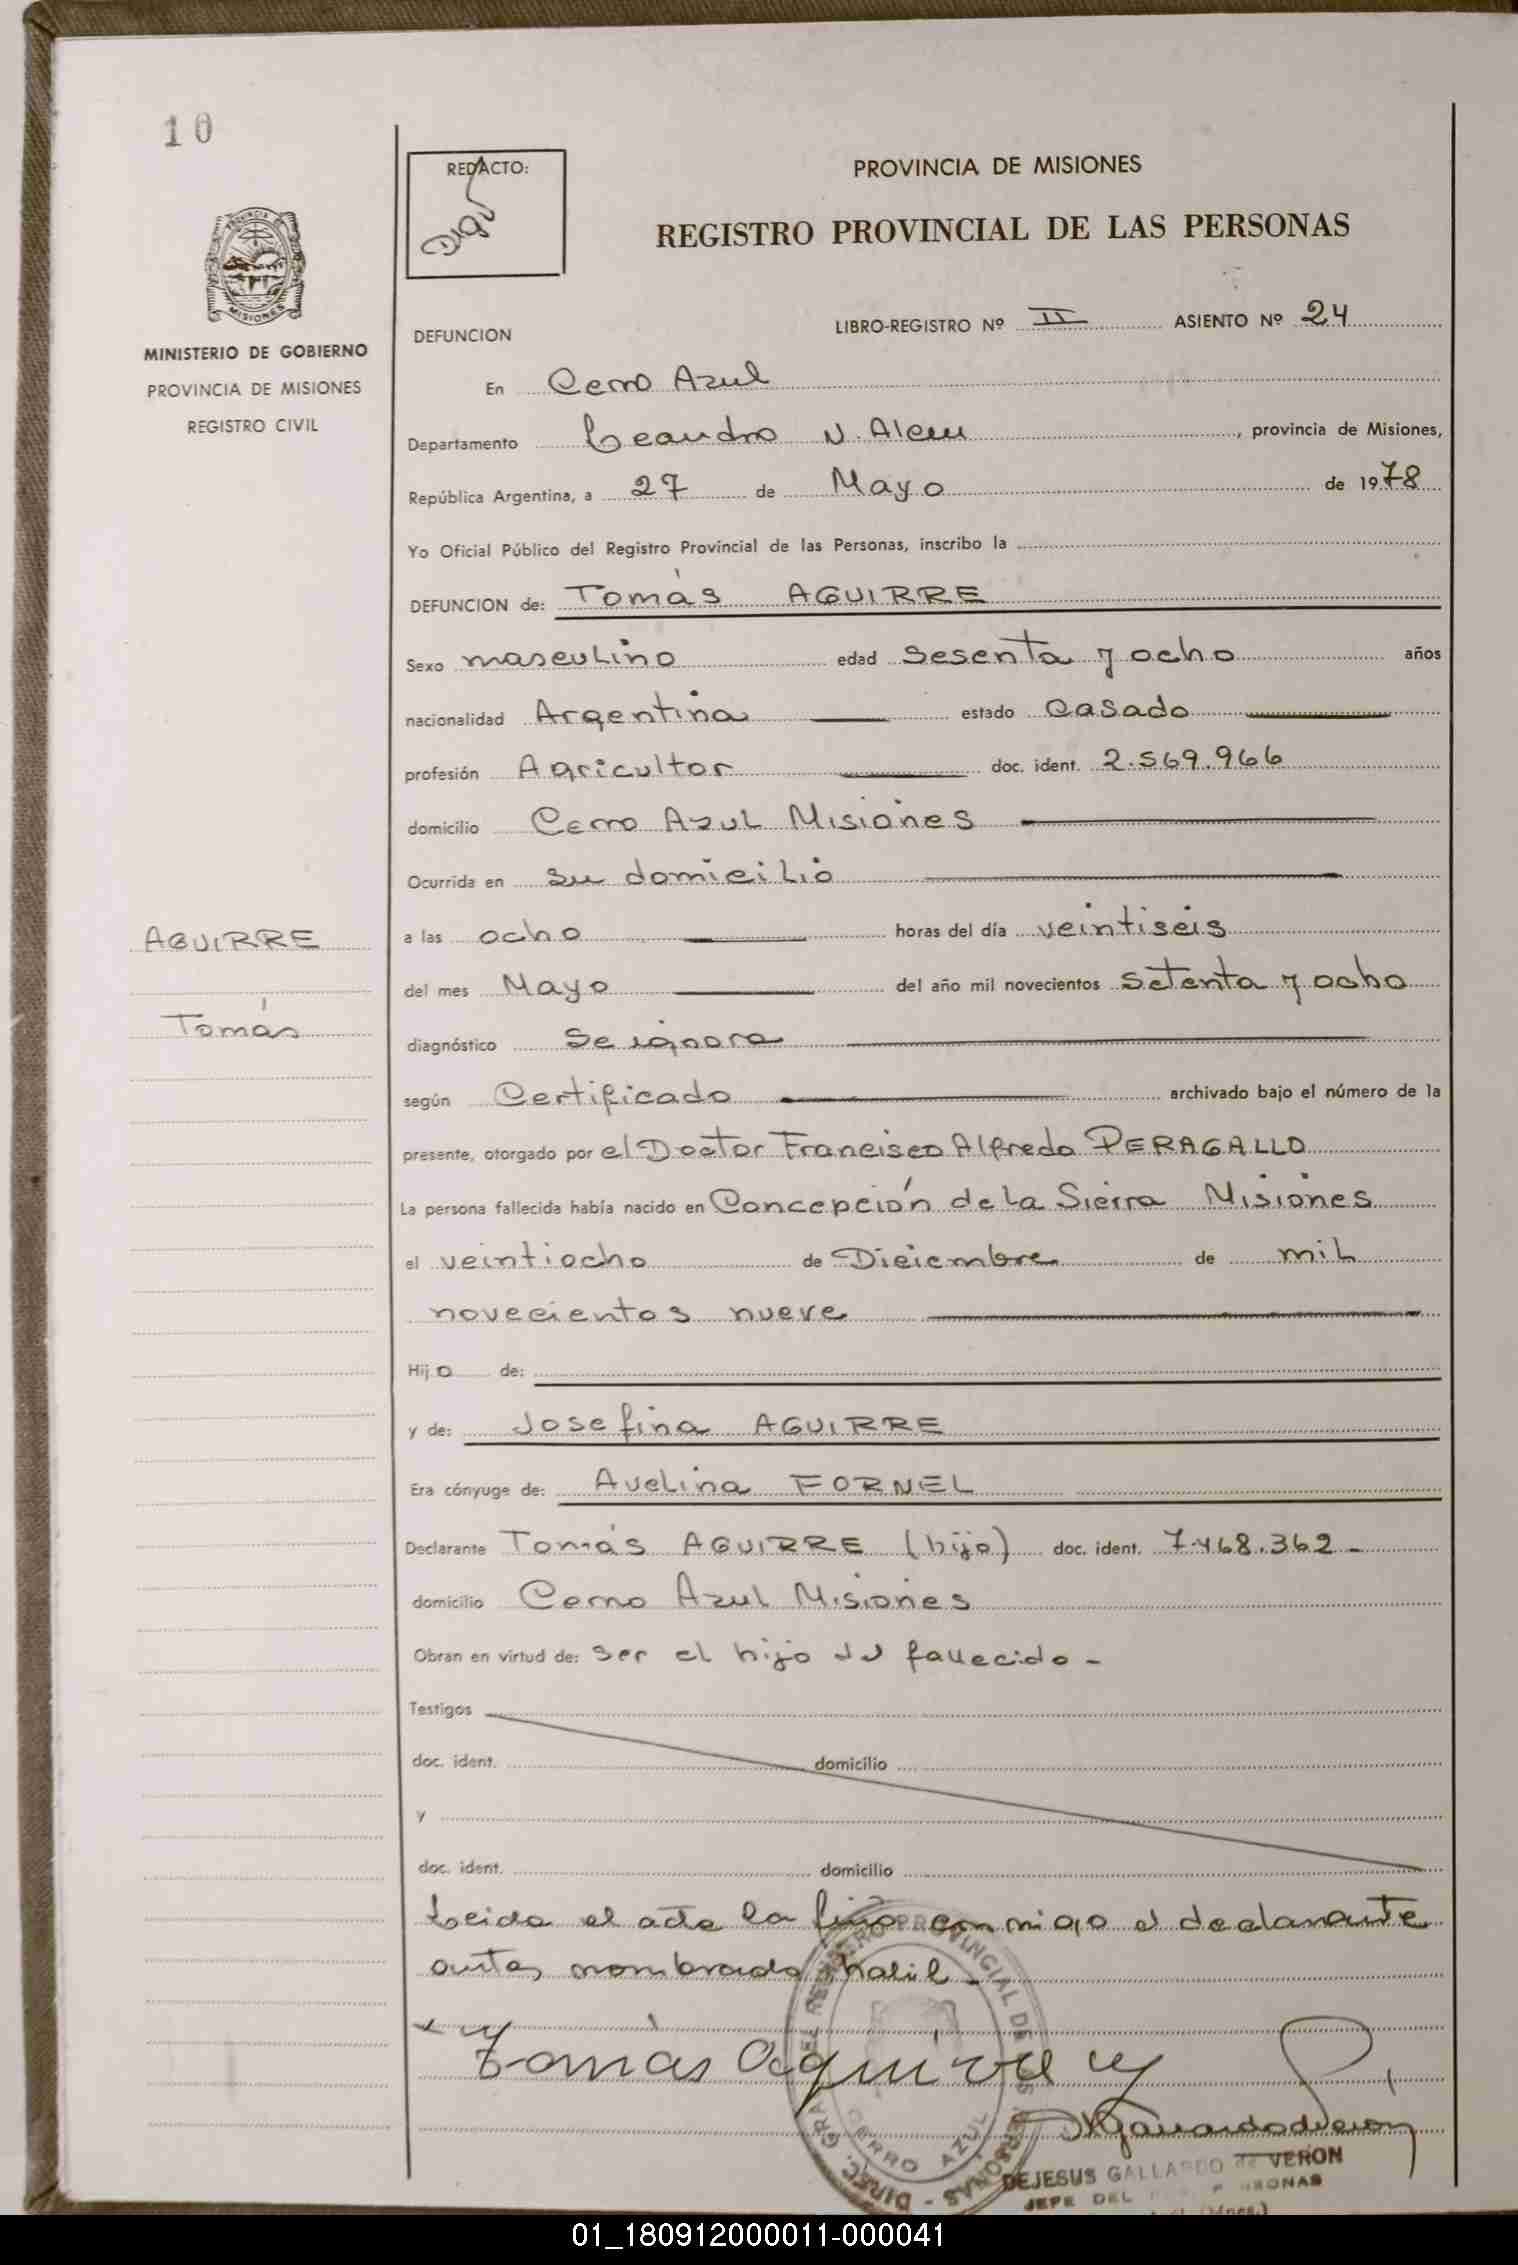 10
REDACTO:
PROVINCIA DE MISIONES
REGISTRO PROVINCIAL DE LAS PERSONAS
PROVINCIA
MISIONES
MINISTERIO DE GOBIERNO
PROVINCIA DE MISIONES
REGISTRO CIVIL
DEFUNCION
LIBRO-REGISTRO Nº II ASIENTO Nº 24
En Cerro Azul
Departamento Leandro N. Alem, provincia de Misiones,
República Argentina, a 27 de Mayo de 1978
Yo Oficial Público del Registro Provincial de las Personas, inscribo la
DEFUNCION de: Tomás AGUIRRE
Sexo masculino edad sesenta y ocho años
nacionalidad Argentina estado casado
profesión Agricultor doc. ident. 2.569.966
domicilio Cerro Azul Misiones
Ocurrida en su domicilio
AGUIRRE
Tomás
a las ocho horas del día veintiseis
del mes Mayo del año mil novecientos setenta y ocho
diagnóstico se ignora
según Certificado archivado bajo el número de la
presente, otorgado por el Doctor Francisco Alfredo PERAGALLO
La persona fallecida había nacido en Concepción de la Sierra Misiones
el veintiocho de Diciembre de mil
novecientos nueve
Hijo de:
y de: Josefina AGUIRRE
Era cónyuge de: Avelina FORNEL
Declarante Tomás AGUIRRE (hijo) doc. ident. 7.468.362-
domicilio Cerro Azul Misiones
Obran en virtud de: ser el hijo del fallecido -
Testigos
doc. ident. domicilio
y
doc. ident. domicilio
Leida el acta la firma conmigo el declarante
antes nombrado
Tomás Aguirre
DIREC. GRAL. DEL REGISTRO PROVINCIAL DE LAS PERSONAS -
CERRO AZUL
DEJESUS GALLARDO de VERON
JEFE DEL
01_180912000011-000041